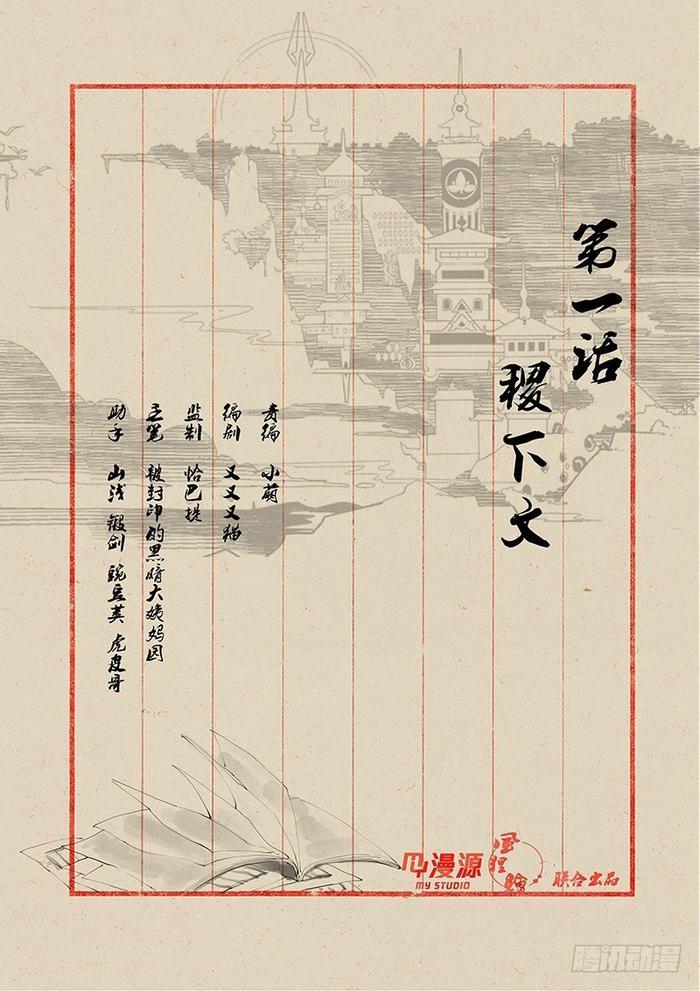 第一话
稷下文
责编 小萌
编剧 又又又猫
监制 恰巴提
主笔 被封印的黑暗大姨妈园
助手 山浅 锻剑 豌豆荚 虎皮哥
漫源
MY STUDIO
联合出品
腾讯动漫